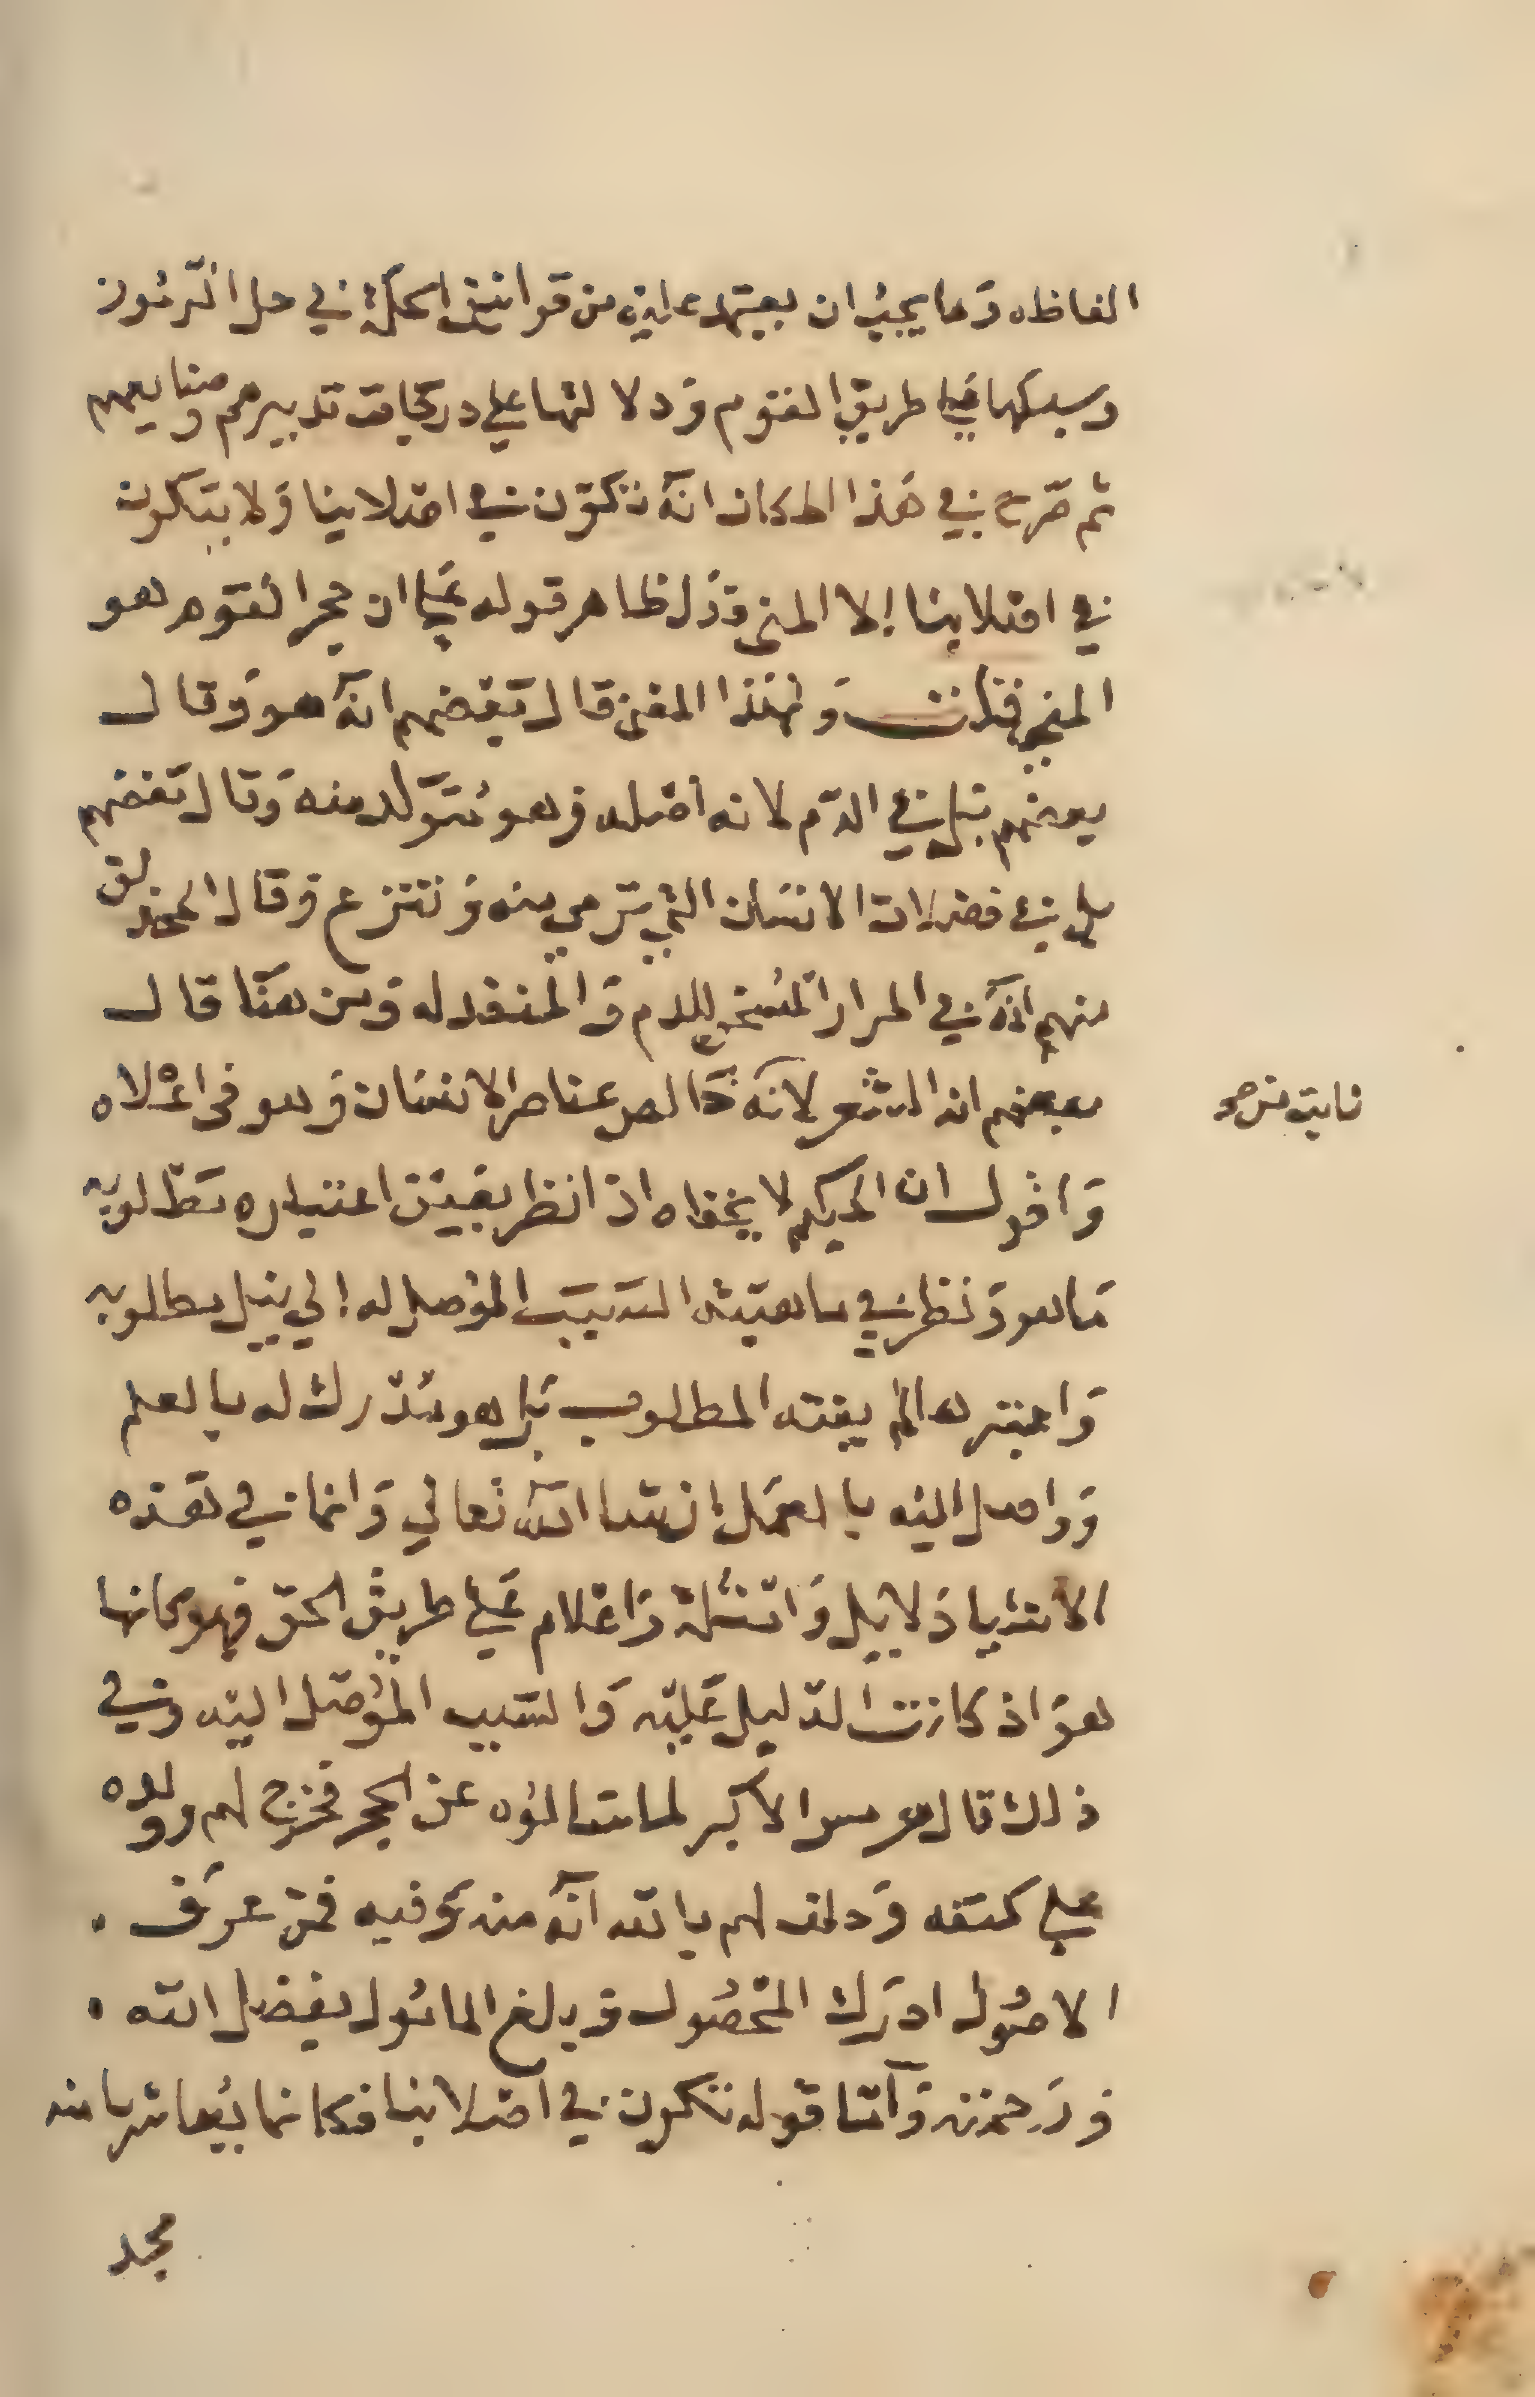 الفاظه وما يجب ان يعتمد عليه من قوانين الحكمة في حل الرموز
وسبكها على طريق القوم ودلالتها على درجات تدبيرهم وصنايعهم
ثم صرح في هذا المكان انه تتكون في اصلابنا ولا يتكون
في اصلابنا إلا المني ودل ظاهر قوله على ان حجر القوم هو
المني ولهذا المعنى قال بعضهم انه هو وقال
بعضهم بل في الدم لانه اصله وهو متولد منه وقال بعضهم
بل في فضلات الانسان التي ترمي منه وتنتزع وقال الحذلق
منهم انه في المرار المسخن للدم والمنفد له ومن هنا قال
بعضهم انه الشعر لانه خالص عناصر الانسان وهو في اعلاه
واقول ان الحكيم لا يخفاه اذا نظر بعين اعتباره مطلوبه
ما هو ونظر في ماهية السبب الموصل له إلى نيل مطلوبه
واعتبرها لم يفته المطلوب بل هو مدرك له بالعلم
وواصل اليه بالعمل ان شا الله تعالى وانما في هذه
الاشيا دلايل وامثلة واعلام على طريق الحق فهو كانها
هو اذ كانت الدليل عليه والسبب الموصل اليه وفي
ذلك قال هرمس الاكبر لما سالوه عن الحجر فخرج لهم وولده
على كتفه وحلف لهم بالله انه منه وفيه فمن عرف .
الاصول ادرك المحصول وبلغ المأمول بفضل الله .
ورحمته واما قوله تتكون في اصلابنا فكانما
مجد